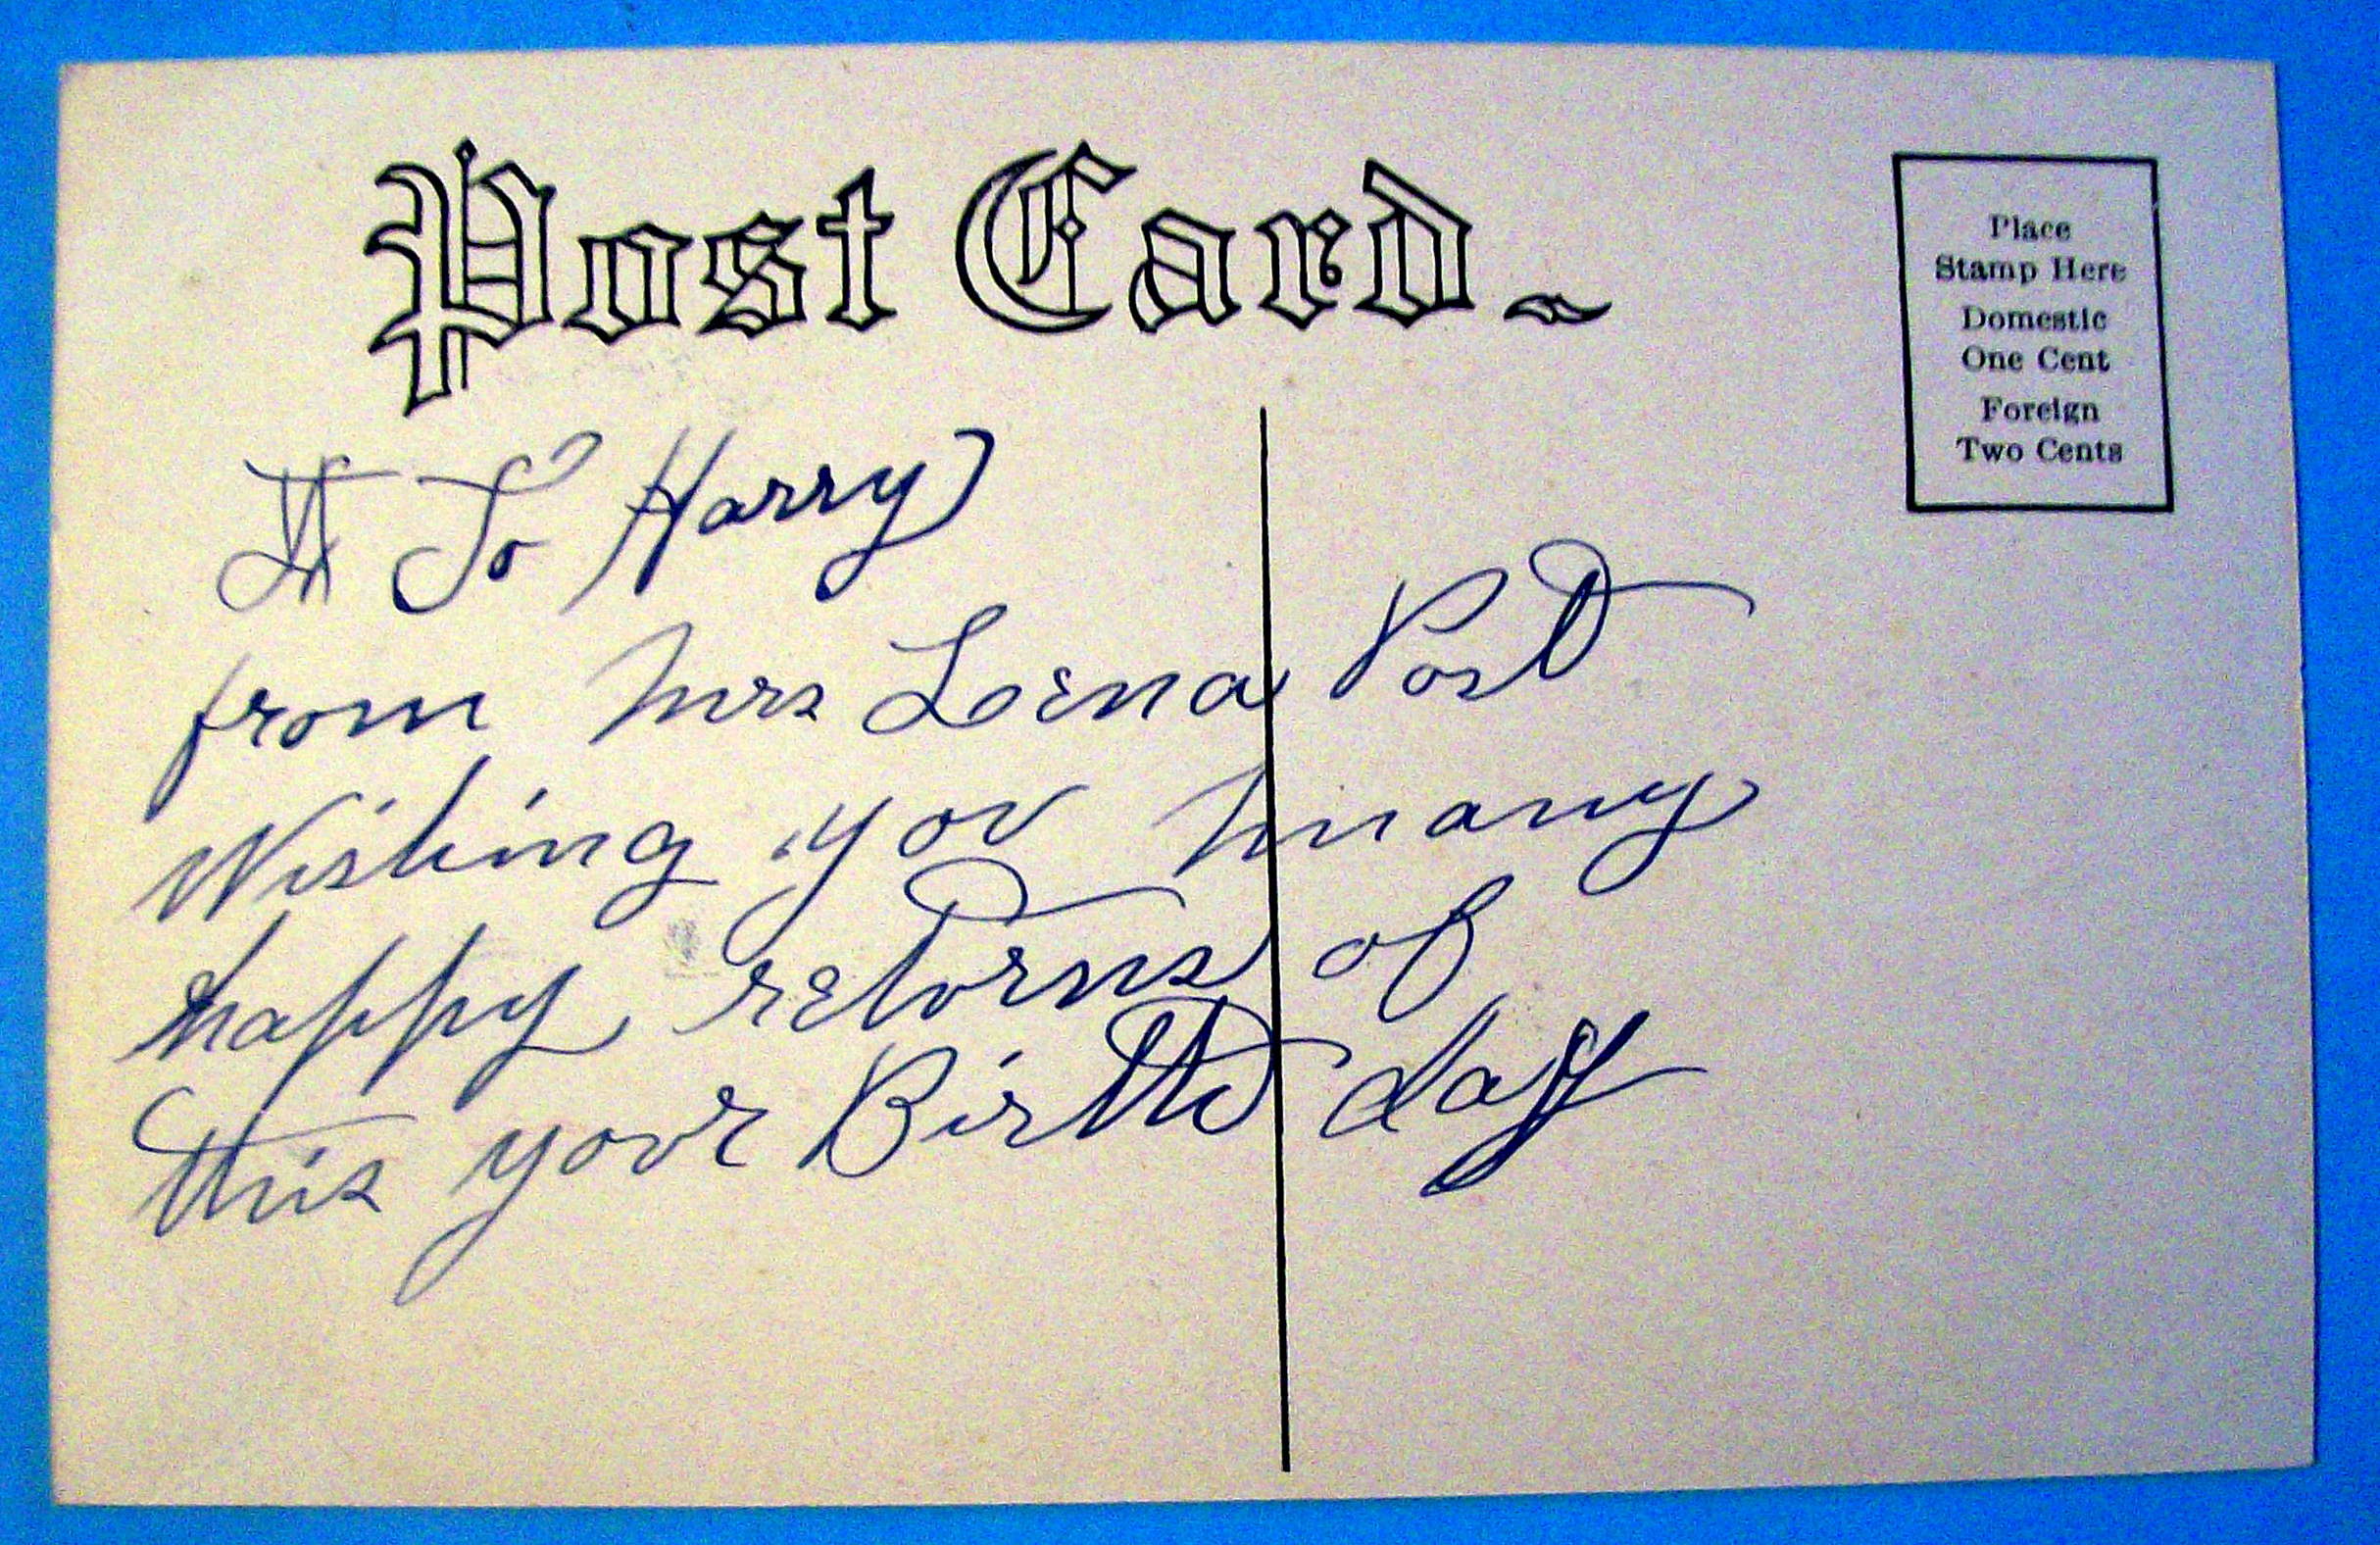 Post Card
Place
Stamp Here
Domestic
One Cent
Foreign
Two Cents
To Harry
from Mrs Loena Post
Wishing you many
happy returns of
this your Birth day